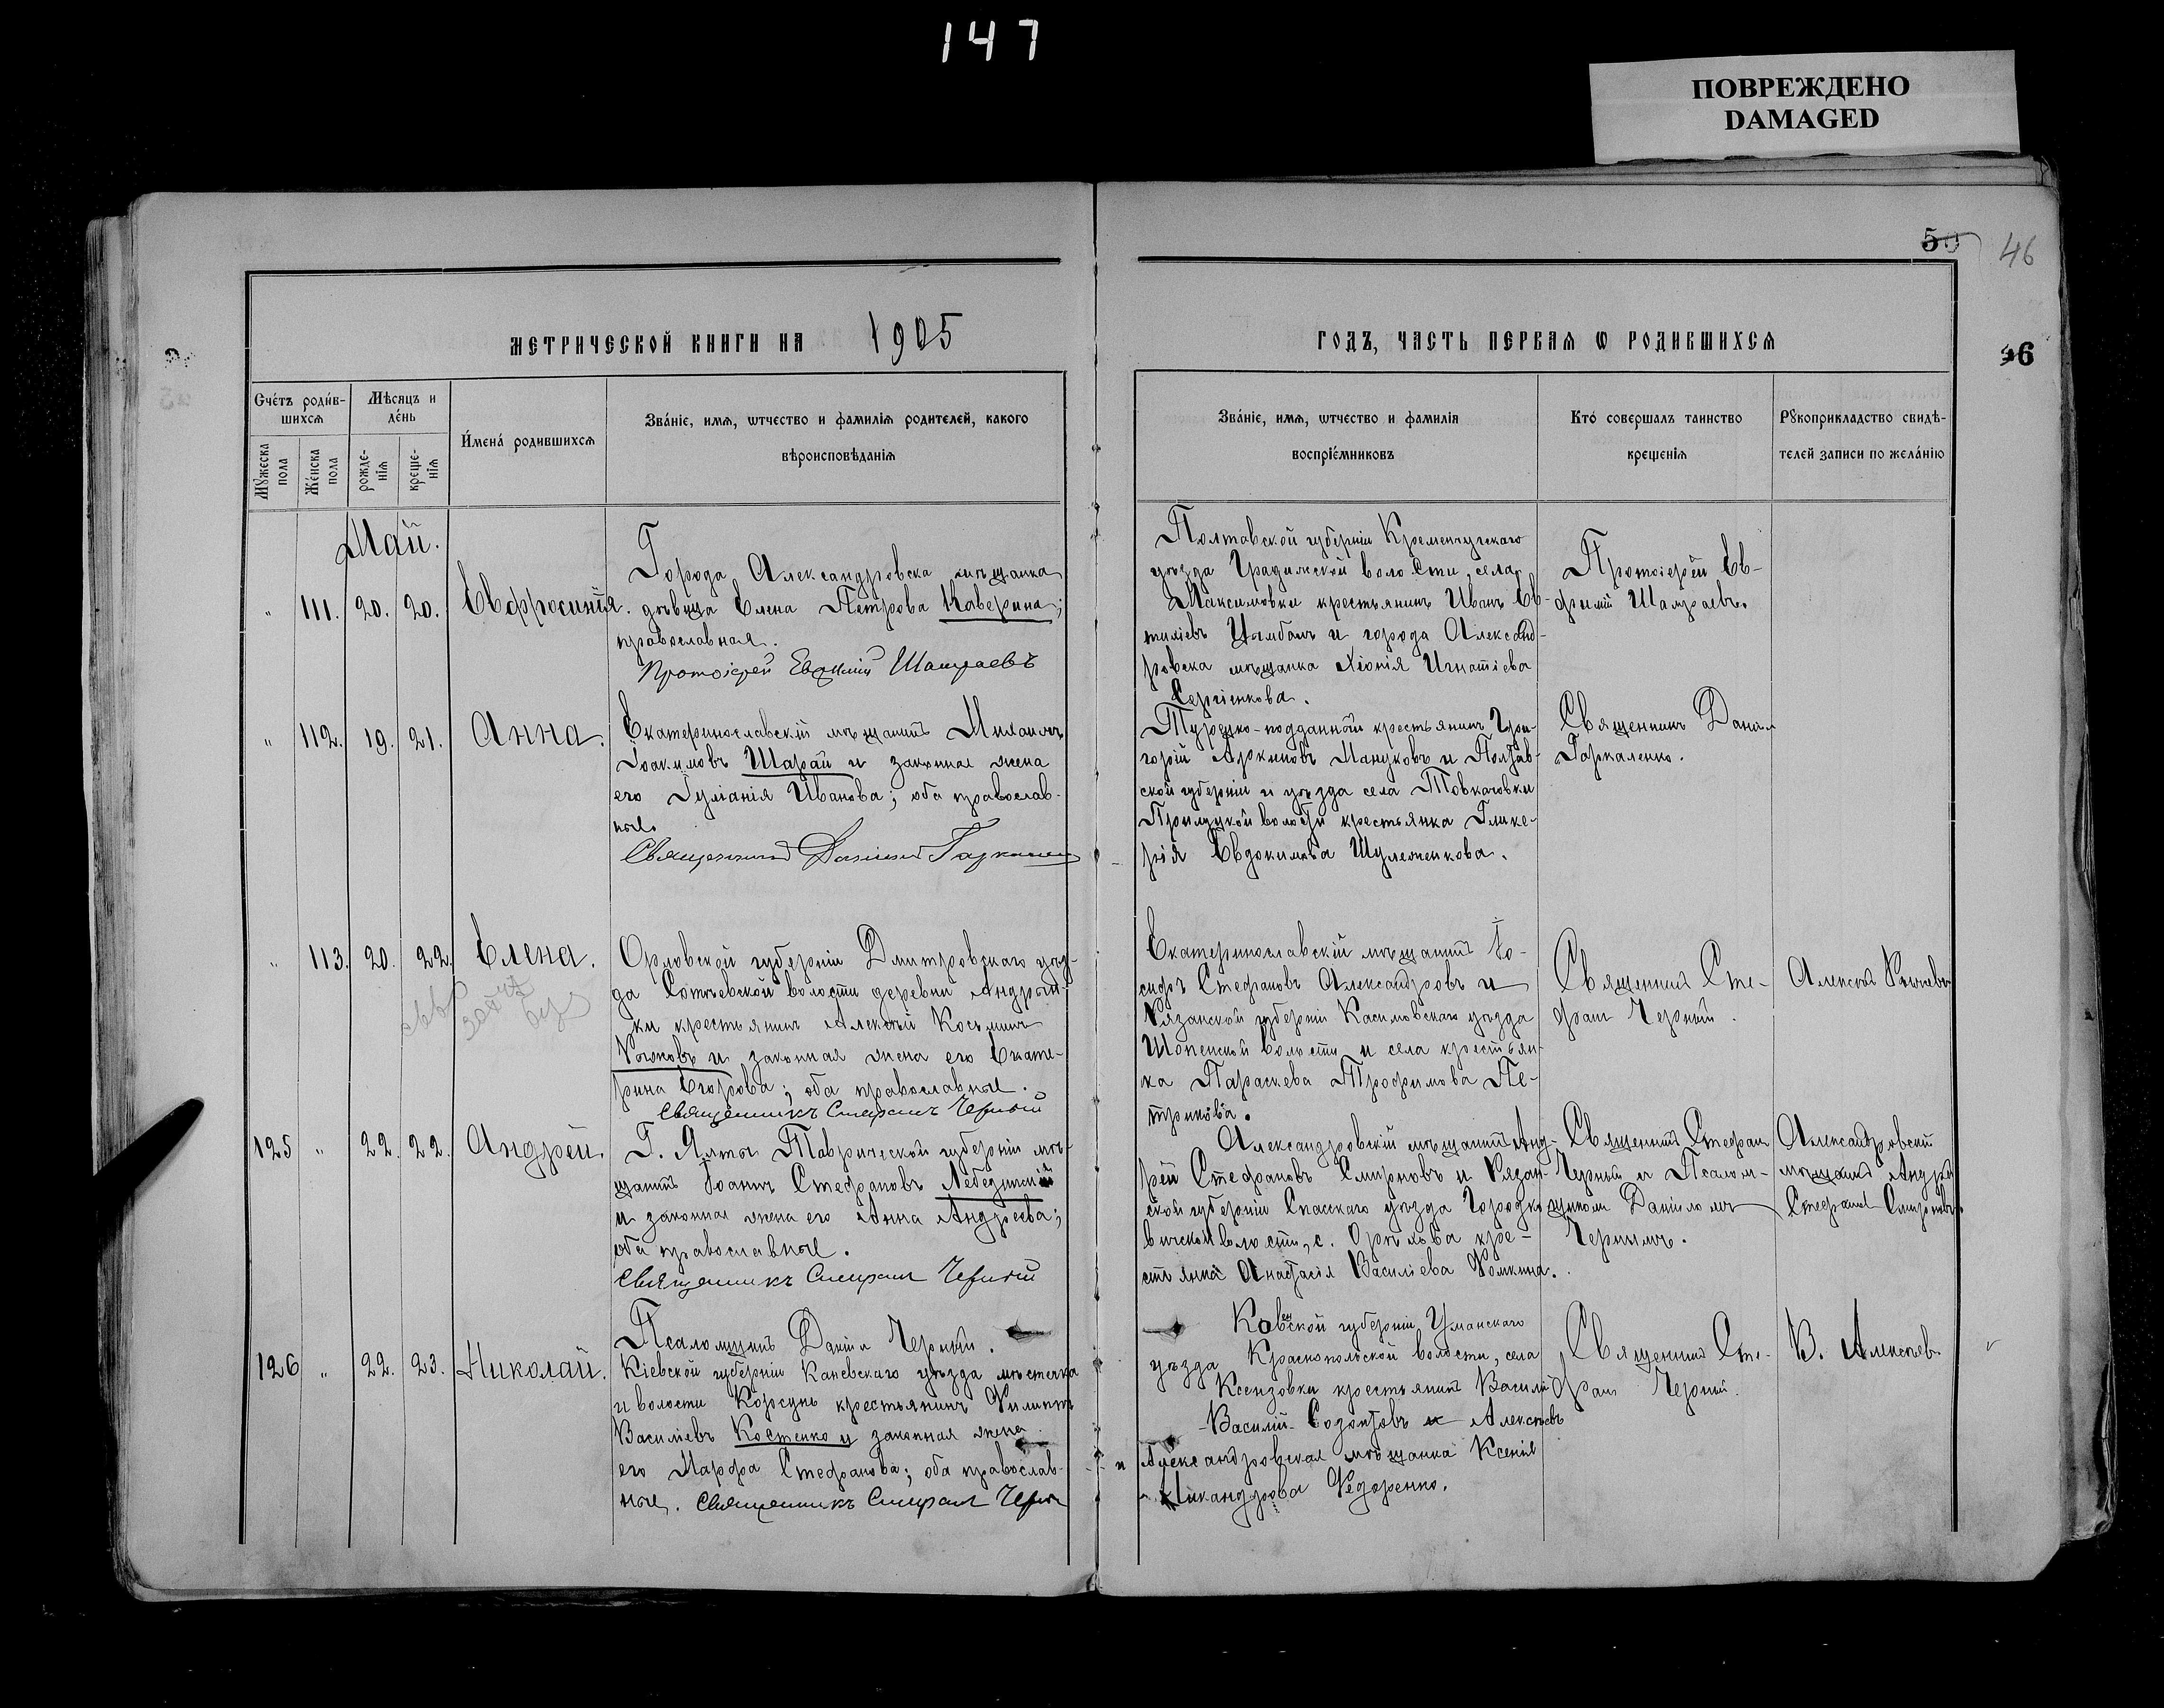 147
ПОВРЕЖДЕНО
DAMAGED
50 46
МЕТРИЧЕСКОЙ КНИГИ НА 1905
ГОДЪ, ЧАСТЬ ПЕРВАѦ Ѡ РОДИВШИХСѦ
46
Счéтъ роди́в-
шихсѧ
Мѣсяцъ и
дéнь
Мꙋ́жеска
пола
Жéнска
пола
рожде-
нїѧ
креще-
нїѧ
И́мена́ родившихсѧ
Зва́нїе, имѧ, ѡтчество и фамилїѧ родителей, какого
вѣроисповѣданїѧ
Зва́нїе, имѧ, ѡтчество и фамилїѧ
воспрїéмниковъ
Кто́ совершалъ таинство
крещенїѧ
Рꙋкоприкладство свидѣ-
телей записи по жела́нїю
Май.
" 111. 20. 20. Евфросинія.
Города Александровска мѣщанка
дѣвица Елена Петрова Каверина;
православная.
Протоіерей Евфимій
Полтавской губерніи Кременчугскаго
уѣзда Градижской волости, села
Максимовки крестьянинъ Иванъ Ев-
тихіевъ Цымбалъ и города Александ-
ровска мѣщанка Хіонія Игнатіева
Сергіенкова.
Протоіерей Ев-
фимій
" 112. 19. 21. Анна.
Екатеринославскій мѣщанинъ Михаилъ
Іоакимовъ Шарай и законная жена
его Іуліанія Иванова; оба православ-
ные.
Священникъ Даніилъ
Турецко-подданный крестьянинъ Гри-
горій Мануковъ и Полтав-
ской губерніи и уѣзда села
волости крестьянка Глике-
рія Евдокимова
Священникъ Даніилъ
Гаркаленко.
" 113. 20. 22. Елена.
Орловской губерніи Дмитровскаго уѣз-
да волости деревни
ки крестьянинъ Алексѣй Косьминъ
и законная жена его Екате-
рина Егорова; оба православные.
Священникъ Стефанъ Черный
Екатеринославскій мѣщанинъ Іо-
сифъ Стефановъ Александровъ и
Рязанской губерніи Касимовскаго уѣзда
волости и села крестьян-
ка Параскева Трофимова Пе-
трикова.
Священникъ Сте-
фанъ Черный.
Алексѣй
125 " 22. 22. Андрей.
Г. Ялты Таврической губерніи мѣ-
щанинъ Іоаннъ Стефановъ Лебединскій
и законная жена его Анна Андреева;
оба православные.
Священникъ Стефанъ Черный
Псаломщикъ Даніилъ Черный.
Александровскій мѣщанинъ Анд-
рей Стефановъ Смирновъ и Рязан-
ской губерніи Спасскаго уѣзда
волости, с. кре-
стьянка Анастасія Василіева Фомкина.
Священникъ Стефанъ
Черный и Псалом-
щикомъ Даніиломъ
Чернымъ.
Александровскій
мѣщанинъ Андрей
Стефановъ Смирновъ.
126 " 22. 23. Николай.
Кіевской губерніи Каневскаго уѣзда мѣстечка
и волости Корсунь крестьянинъ Филиппъ
Василіевъ Костенко и законная жена
его Марфа Стефанова; оба православ-
ные. Священникъ Стефанъ
губерніи Уманскаго
уѣзда Краснопольской волости, села
Ксензовки крестьянинъ Василій
Василій Алексѣевъ
и Александровская мѣщанка Ксенія
Никандрова Федоренко.
Священникъ Сте-
фанъ Черный.
В. Алексѣевъ.